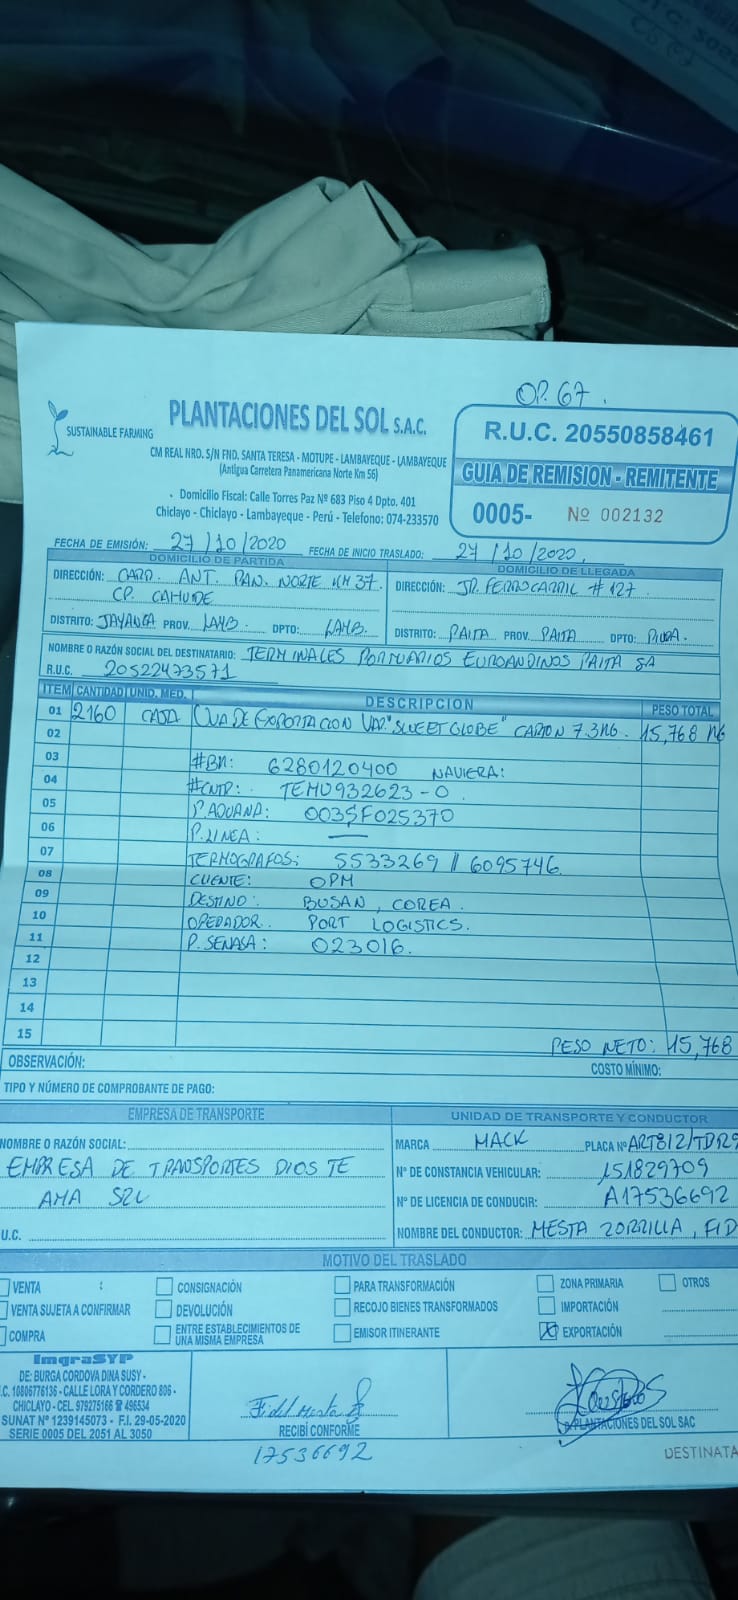 OP. 67.
PLANTACIONES DEL SOL S.A.C.
SUSTAINABLE FARMING
CM REAL NRO. S/N FND. SANTA TERESA - MOTUPE - LAMBAYEQUE - LAMBAYEQUE
(Antigua Carretera Panamericana Norte Km 56)
Domicilio Fiscal: Calle Torres Paz Nº 683 Piso 4 Dpto. 401
Chiclayo - Chiclayo - Lambayeque - Perú - Telefono: 074-233570
R.U.C. 20550858461
GUIA DE REMISION - REMITENTE
0005- Nº 002132
FECHA DE EMISIÓN: 27/10/2020 FECHA DE INICIO TRASLADO: 27/10/2020
DOMICILIO DE PARTIDA
DOMICILIO DE LLEGADA
DIRECCIÓN: CARR. ANT. PAN. NORTE KM 37. DIRECCIÓN: JR. FERROCARRIL # 127
CP. CAHUIDE
DISTRITO: JAYANCA PROV. LAMB. DPTO: LAMB. DISTRITO: PAITA PROV. PAITA DPTO: PIURA.
NOMBRE O RAZÓN SOCIAL DEL DESTINATARIO: TERMINALES PORTUARIOS EUROANDINOS PAITA SA
R.U.C. 20522473571
ITEM CANTIDAD UNID. MED. DESCRIPCION PESO TOTAL
01 2160 CAJA UVA DE EXPORTACION VAR. "SWEET GLOBE" CARTON 7.3KG. 15,768 KG
02
03 #BK: 6280120400 NAVIERA:
04 #CNTR: TEMU932623-0
05 P. ADUANA: 0035F025370
06 P. LINEA: —
07 TERMOGRAFOS: 5533269 // 6095746
08 CLIENTE: OPM
09 DESTINO: BUSAN, COREA.
10 OPERADOR. PORT LOGISTICS.
11 P. SENASA: 023016.
12
13
14
15 PESO NETO: 15,768
OBSERVACIÓN: COSTO MÍNIMO:
TIPO Y NÚMERO DE COMPROBANTE DE PAGO:
EMPRESA DE TRANSPORTE
UNIDAD DE TRANSPORTE Y CONDUCTOR
NOMBRE O RAZÓN SOCIAL: MARCA MACK PLACA Nº ART812/TDR9
EMPRESA DE TRANSPORTES DIOS TE Nº DE CONSTANCIA VEHICULAR: 151829709
AMA SRL Nº DE LICENCIA DE CONDUCIR: A17536692
U.C. NOMBRE DEL CONDUCTOR: MESTA ZORRILLA, FID
MOTIVO DEL TRASLADO
VENTA CONSIGNACIÓN PARA TRANSFORMACIÓN ZONA PRIMARIA OTROS
VENTA SUJETA A CONFIRMAR DEVOLUCIÓN RECOJO BIENES TRANSFORMADOS IMPORTACIÓN
COMPRA ENTRE ESTABLECIMIENTOS DE UNA MISMA EMPRESA EMISOR ITINERANTE X EXPORTACIÓN
ImgraSYP
DE: BURGA CORDOVA DINA SUSY -
.C. 10806776136 - CALLE LORA Y CORDERO 806 -
CHICLAYO - CEL. 979275166 ☎ 496534
SUNAT Nº 1239145073 - F.I. 29-05-2020
SERIE 0005 DEL 2051 AL 3050
Fidel Mesta
RECIBÍ CONFORME
17536692
P. PLANTACIONES DEL SOL SAC
DESTINATA